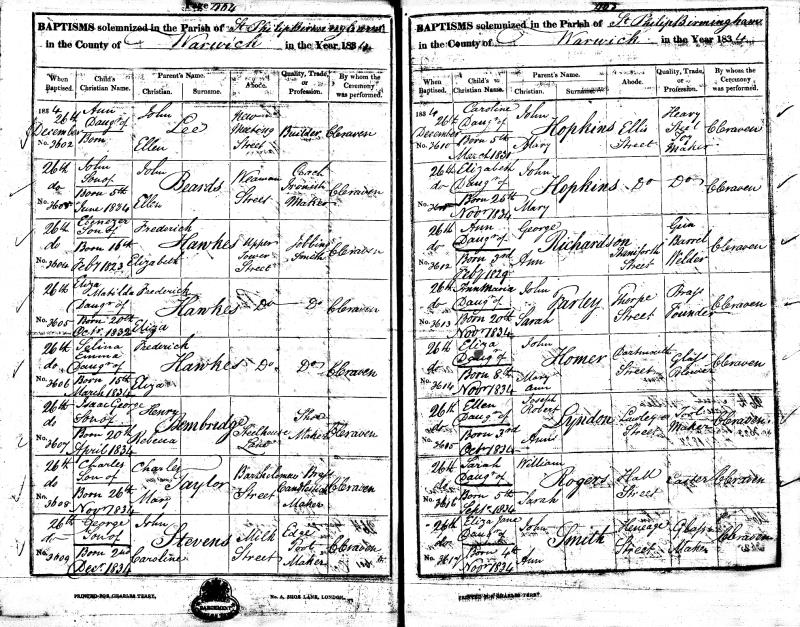 Page 704
BAPTISMS solemnized in the Parish of St. Philip Birmingham
in the County of Warwick in the Year 1834
When Baptised. Child's Christian Name. Parent's Name. Christian. Surname. Abode. Quality, Trade, or Profession. By whom the Ceremony was performed.
1834
26th December
No. 3602
Ann Daugr of
Born
John
Ellen
Lee
New Meeting Street
Builder
C Craven
26th do
John Son of
Born 5th June 1834
John
Ellen
Beards
Weaman Street
Coach Maker
C Craven
26th do
No. 3604
Ebenezer Son of
Born 16th Feby 1823
Frederick
Elizabeth
Hawkes
Upper Tower Street
Jobbing Smith
C Craven
26th do
No. 3605
Eliza Matilda Daugr of
Born 20th Octr 1832
Frederick
Eliza
Hawkes
Do
Do
C Craven
26th do
No. 3606
Selina Emma Daugr of
Born 15th March 1834
Frederick
Eliza
Hawkes
Do
Do
C Craven
26th do
No. 3607
Isaac George Son of
Born 20th April 1834
Henry
Rebecca
Bembridge
Steelhouse Lane
Shoe Maker
C Craven
26th do
No. 3608
Charles Son of
Born 26th Novr 1834
Charles
Mary
Taylor
Bartholomew Street
Brass Candlestick Maker
C Craven
26th do
No. 3609
George Son of
Born 2nd Decr 1834
John
Caroline
Stevens
Milk Street
Edge Tool Maker
C Craven
PRINTED FOR CHARLES TERRY,
PARCHMENT
No. 4, SHOE LANE, LONDON.
705
BAPTISMS solemnized in the Parish of St. Philip Birmingham
in the County of Warwick in the Year 1834
When Baptised. Child's Christian Name. Parent's Name. Christian. Surname. Abode. Quality, Trade, or Profession. By whom the Ceremony was performed.
1834
26th December
No. 3610
Caroline Daugr of
Born 5th March 1831
John
Mary
Hopkins
Ellis Street
Heavy Steel Toy Maker
C Craven
26th do
Elizabeth Daugr of
Born 26th Novr 1834
John
Mary
Hopkins
Do
Do
C Craven
26th do
No. 3612
Ann Daugr of
Born 3rd Feby 1829
George
Ann
Richardson
Street
Gun Barrel Welder
C Craven
26th do
No. 3613
Ann Maria Daugr of
Born 20th Novr 1834
John
Sarah
Farley
Thorpe Street
Brass Founder
C Craven
26th do
No. 3614
Eliza Daugr of
Born 8th Novr 1834
John
Mary Ann
Homer
Dartmouth Street
Glass Blower
C Craven
26th do
No. 3615
Ellen Daugr of
Born 3rd Octr 1834
Joseph Robert
Ann
Lyndon
Street
Tool Maker
C Craven
26th do
No. 3616
Sarah Daugr of
Born 5th Septr 1834
William
Sarah
Rogers
Hall Street
Caster
C Craven
26th do
No. 3617
Eliza Jane Daugr of
Born 4th Novr 1834
John
Ann
Smith
Heneage Street
Glass Maker
C Craven
PRINTED FOR CHARLES TERRY.